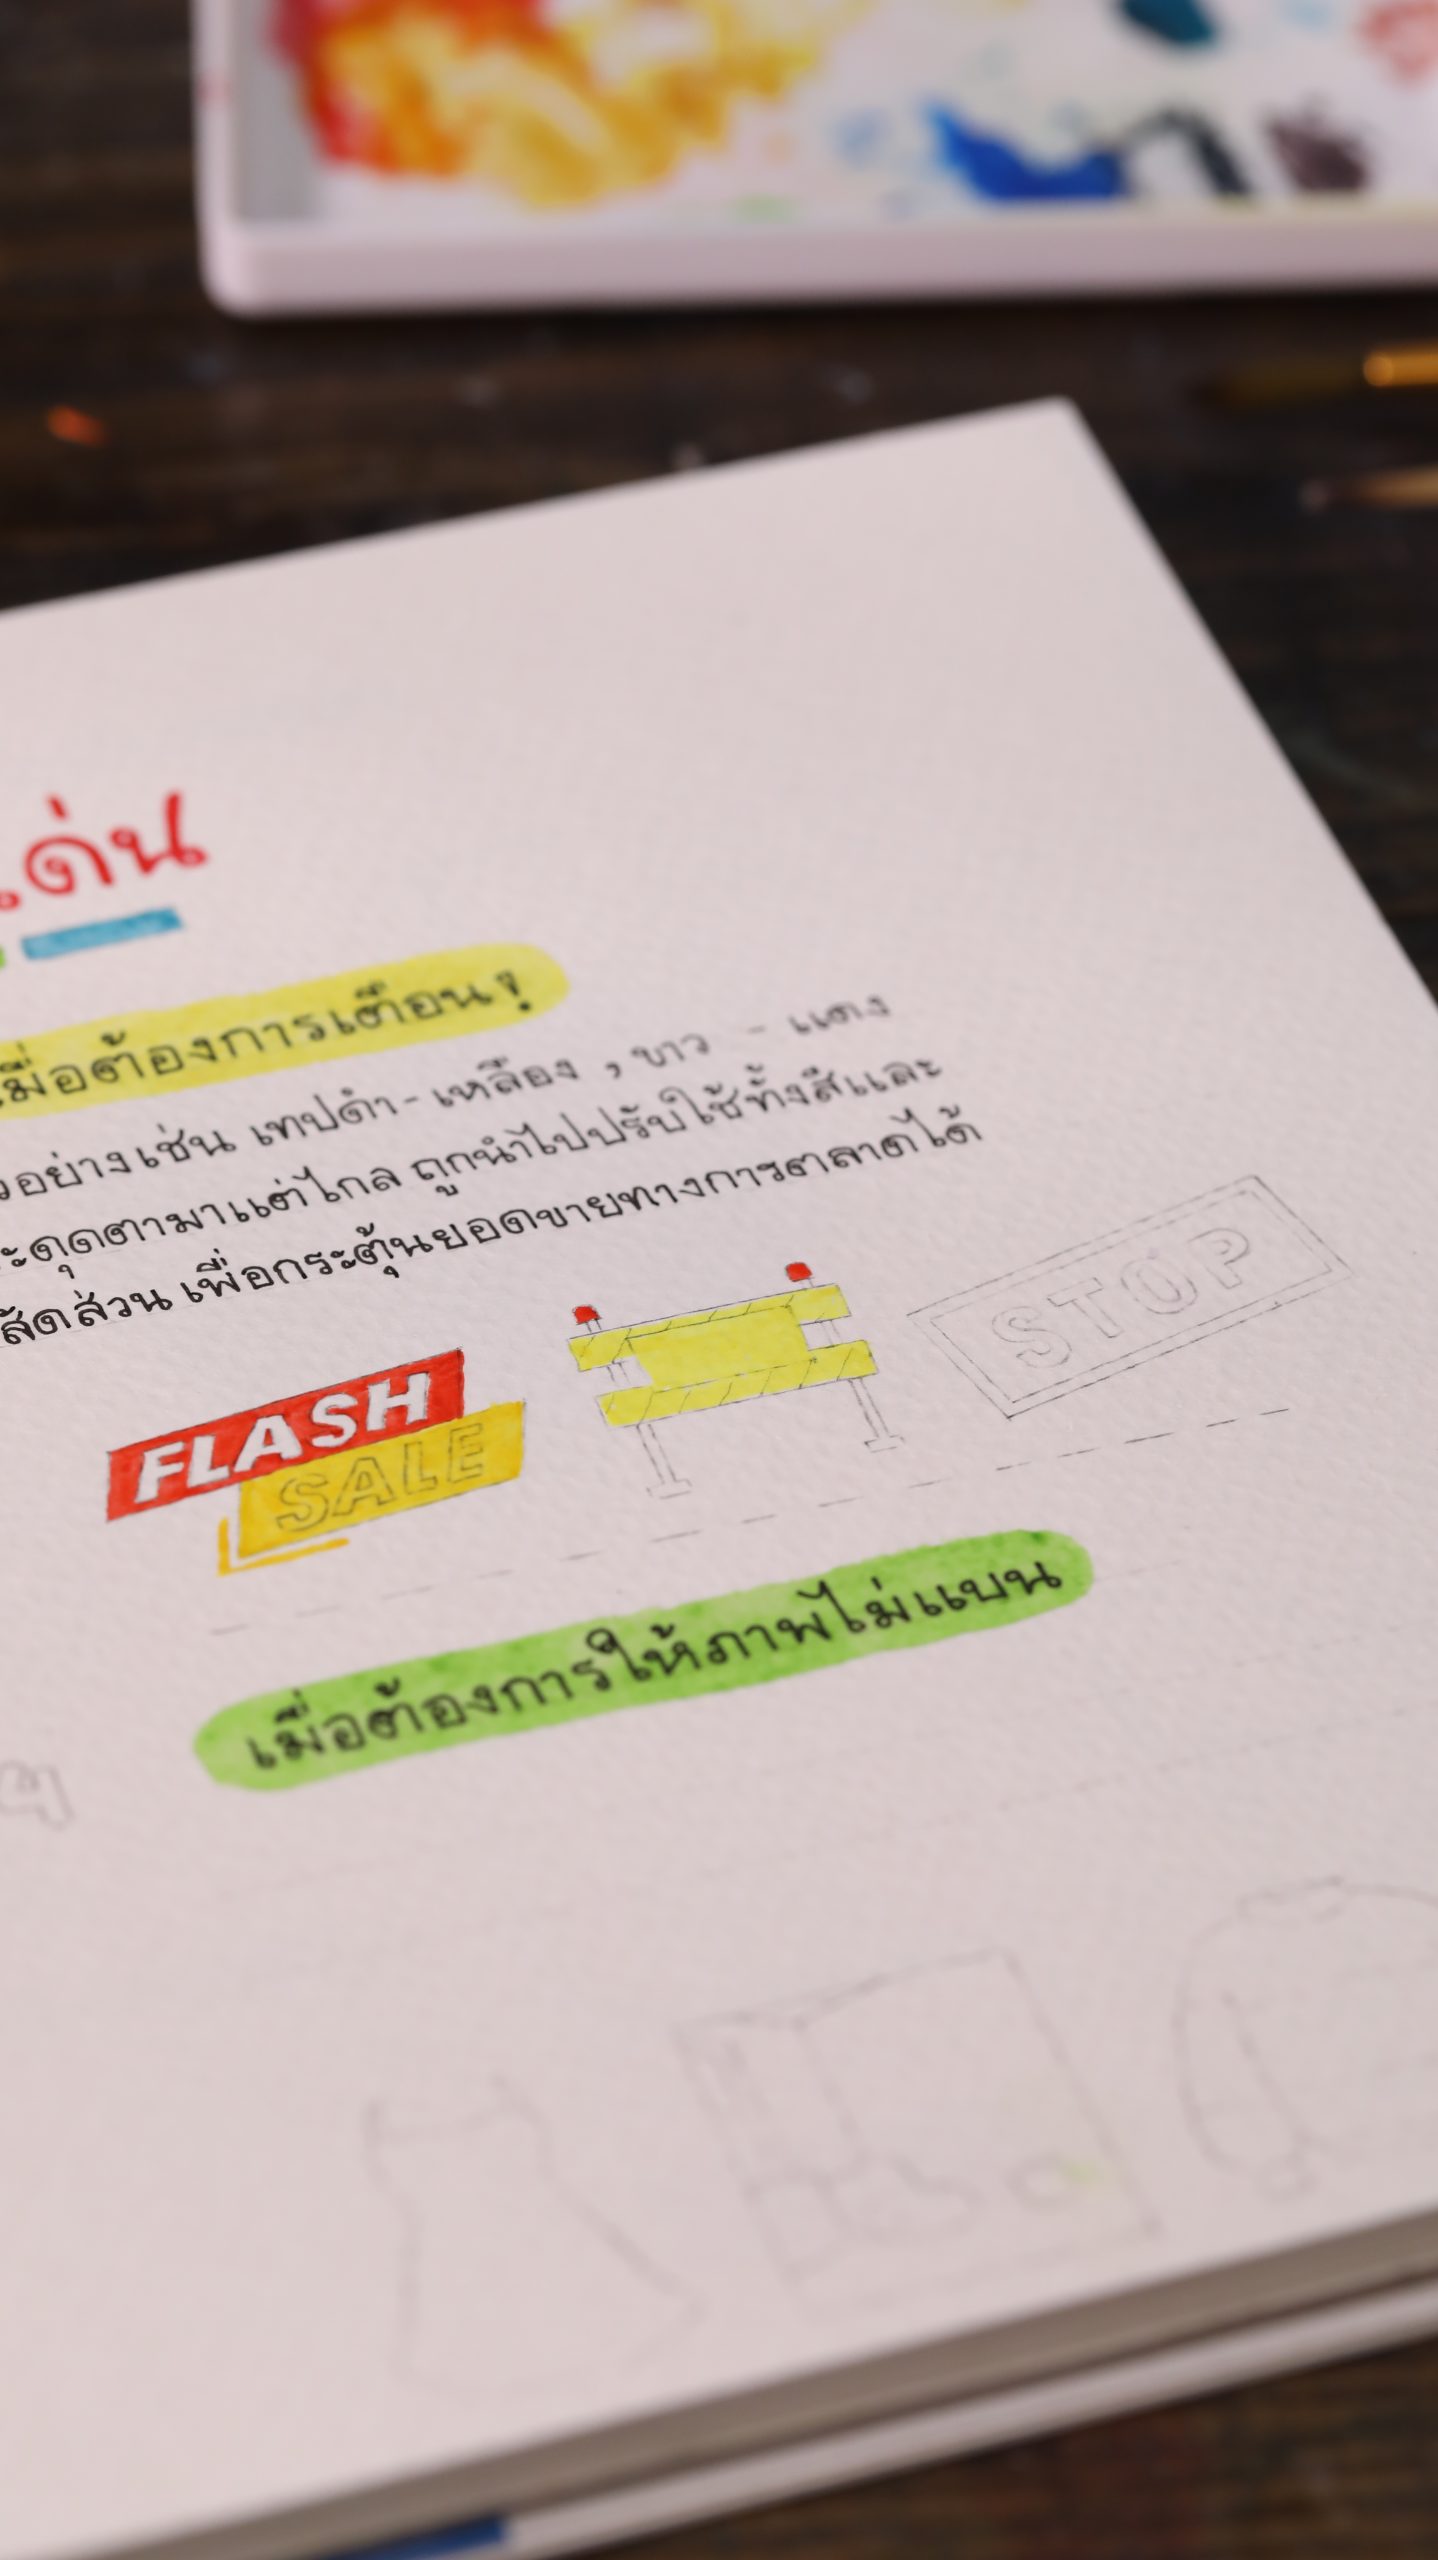 เด่น
เมื่อต้องการเตือน!
อย่างเช่น เทปดำ-เหลือง , ขาว - แดง
ะดุดตามาแต่ไกล ถูกนำไปปรับใช้ทั้งสีและ
สัดส่วน เพื่อกระตุ้นยอดขายทางการตลาดได้
FLASH
SALE
STOP
เมื่อต้องการให้ภาพไม่แบน